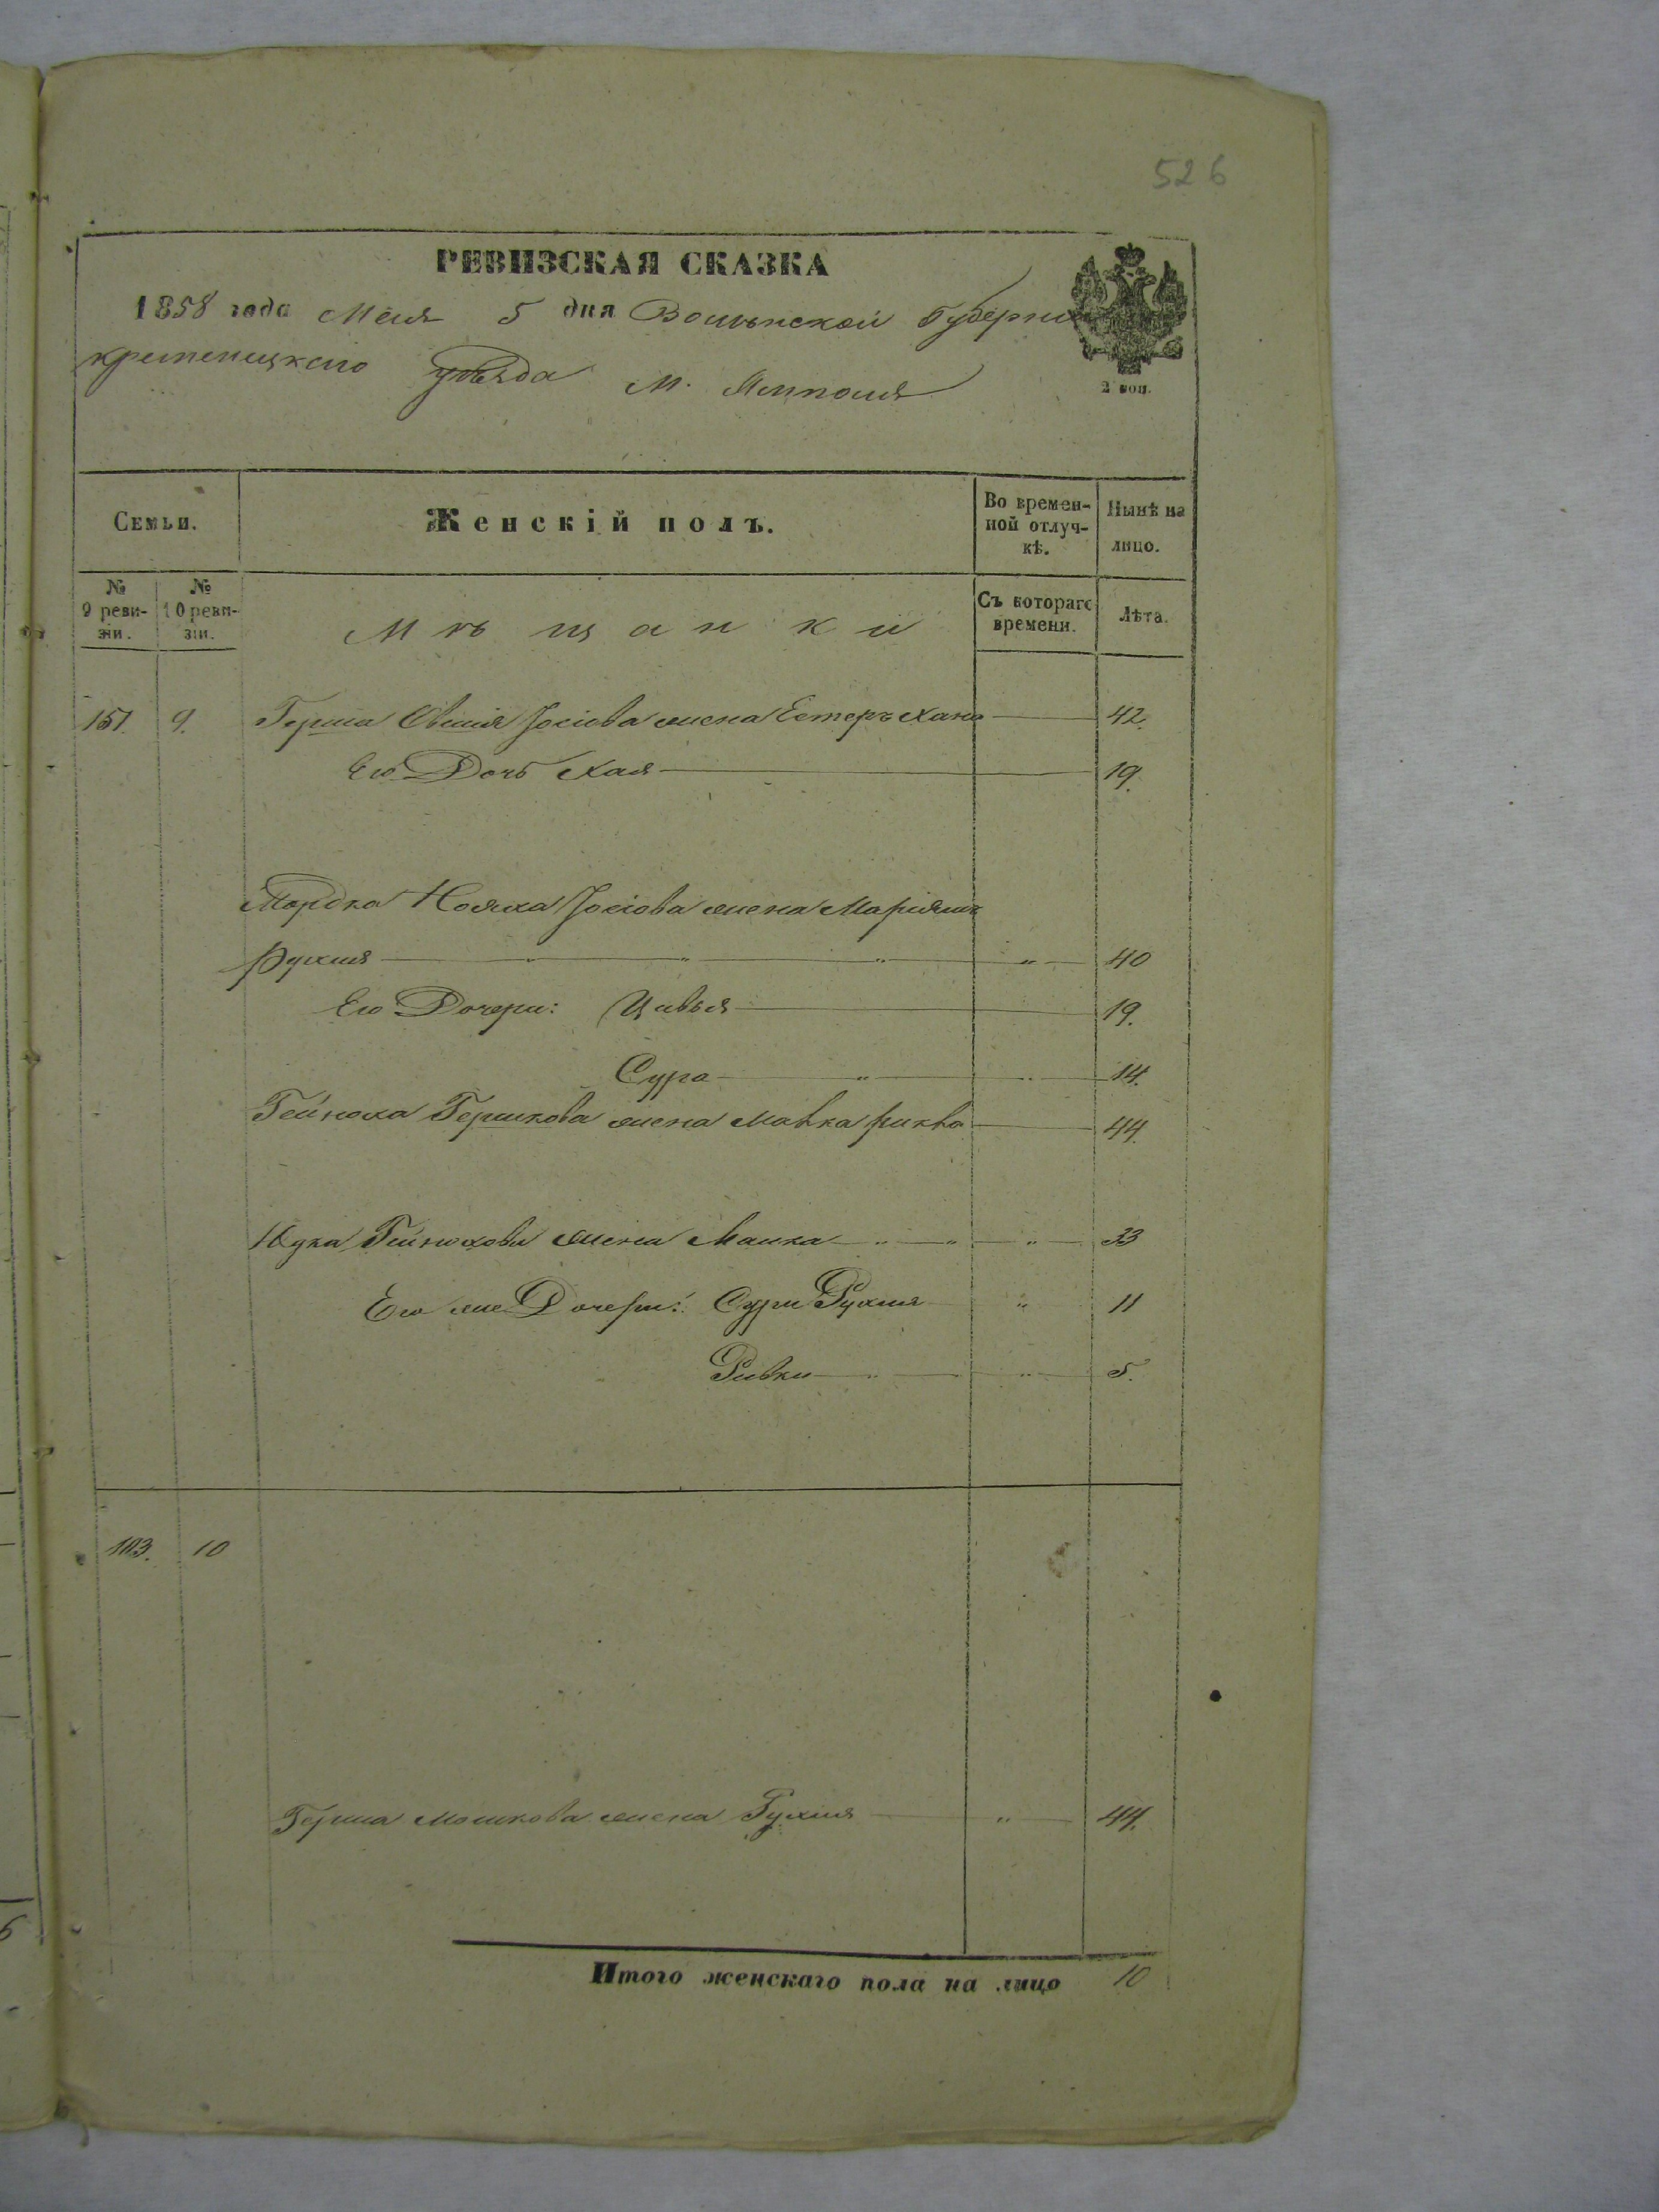 526
РЕВИЗСКАЯ СКАЗКА
1858 года Мая 5 дня Волынской Губернии
кременецкаго уѣзда М. Ямполя
2 коп.
Семьи. Женскій полъ. Во времен-ной отлуч-кѣ. Нынѣ на лицо.
№ 9 реви-зіи. № 10 реви-зіи. Мѣщанки Съ котораго времени. Лѣта.
157. 9. Герша Овшія Іосіова жена Естеръ Хана 42.
Его Дочь Хая 19.
Мордка Нояха Іосіова жена Маріямъ
Рухля " " " " 40
Его Дочери: Цивья 19.
Сура " " 14.
Гейноха Гершкова жена Малка Ривка 44.
Юдка Гейнохова жена Малка " " " 33
Его же Дочери: Сура Рухля " 11
Ривка " " 5.
103. 10
Герша Мошкова жена Рухля " 44.
Итого женскаго пола на лицо 10